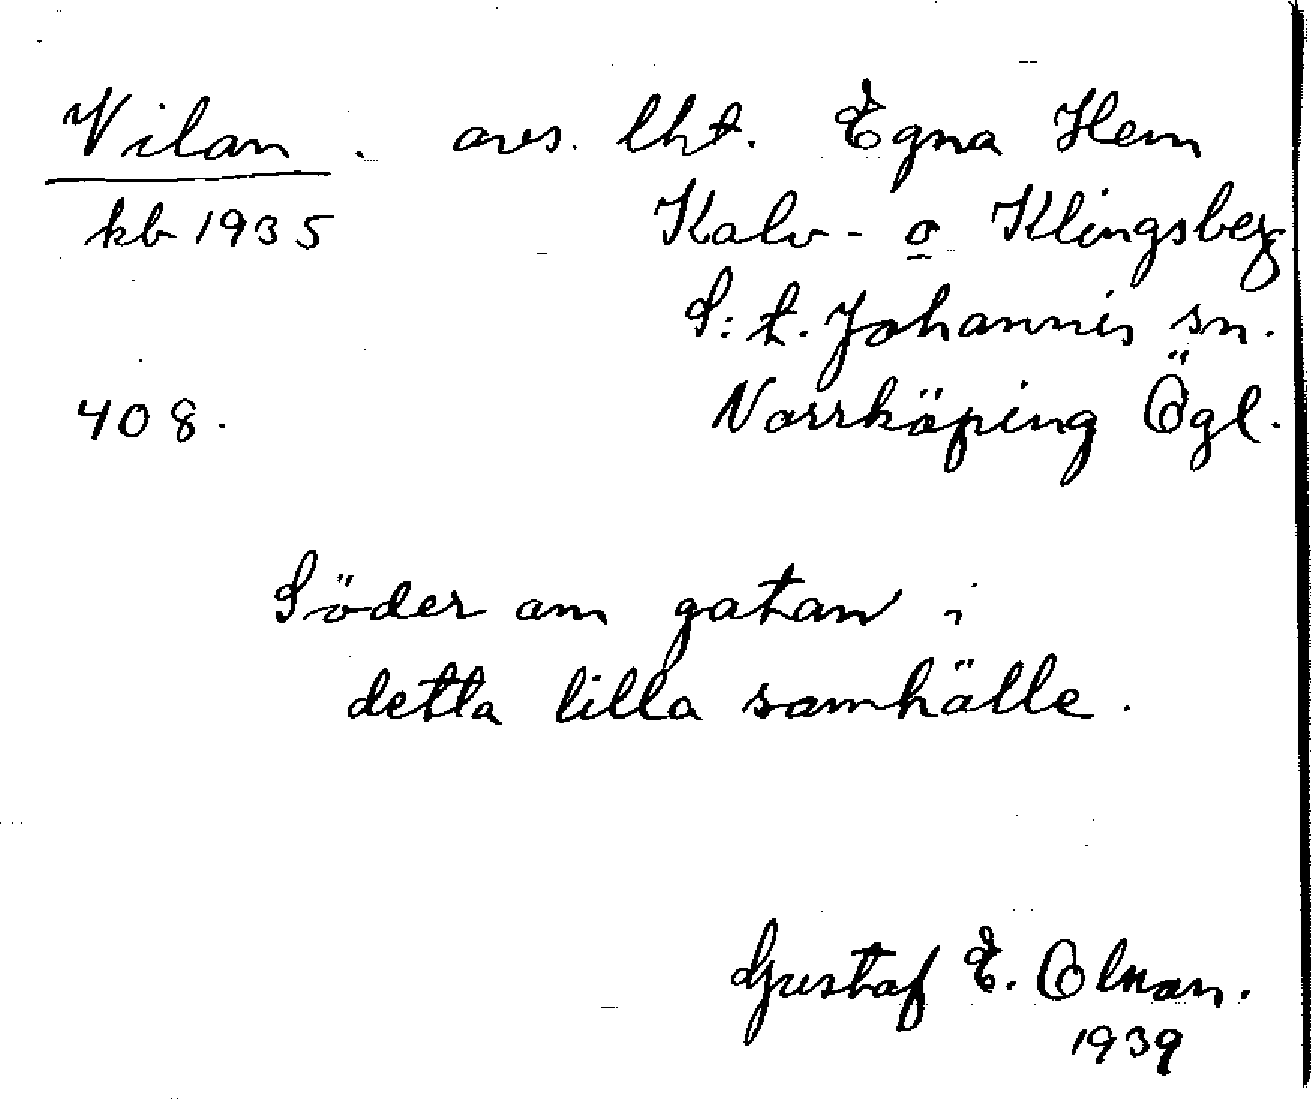 Vilan. avs. lht. Egna Hem
kb 1935 Kalv- o Klingsberg
S:t. Johannis sn.
408. Norrköping Ögl.
Söder om gatan i
detta lilla samhälle.
Gustaf E. Olman.
1939